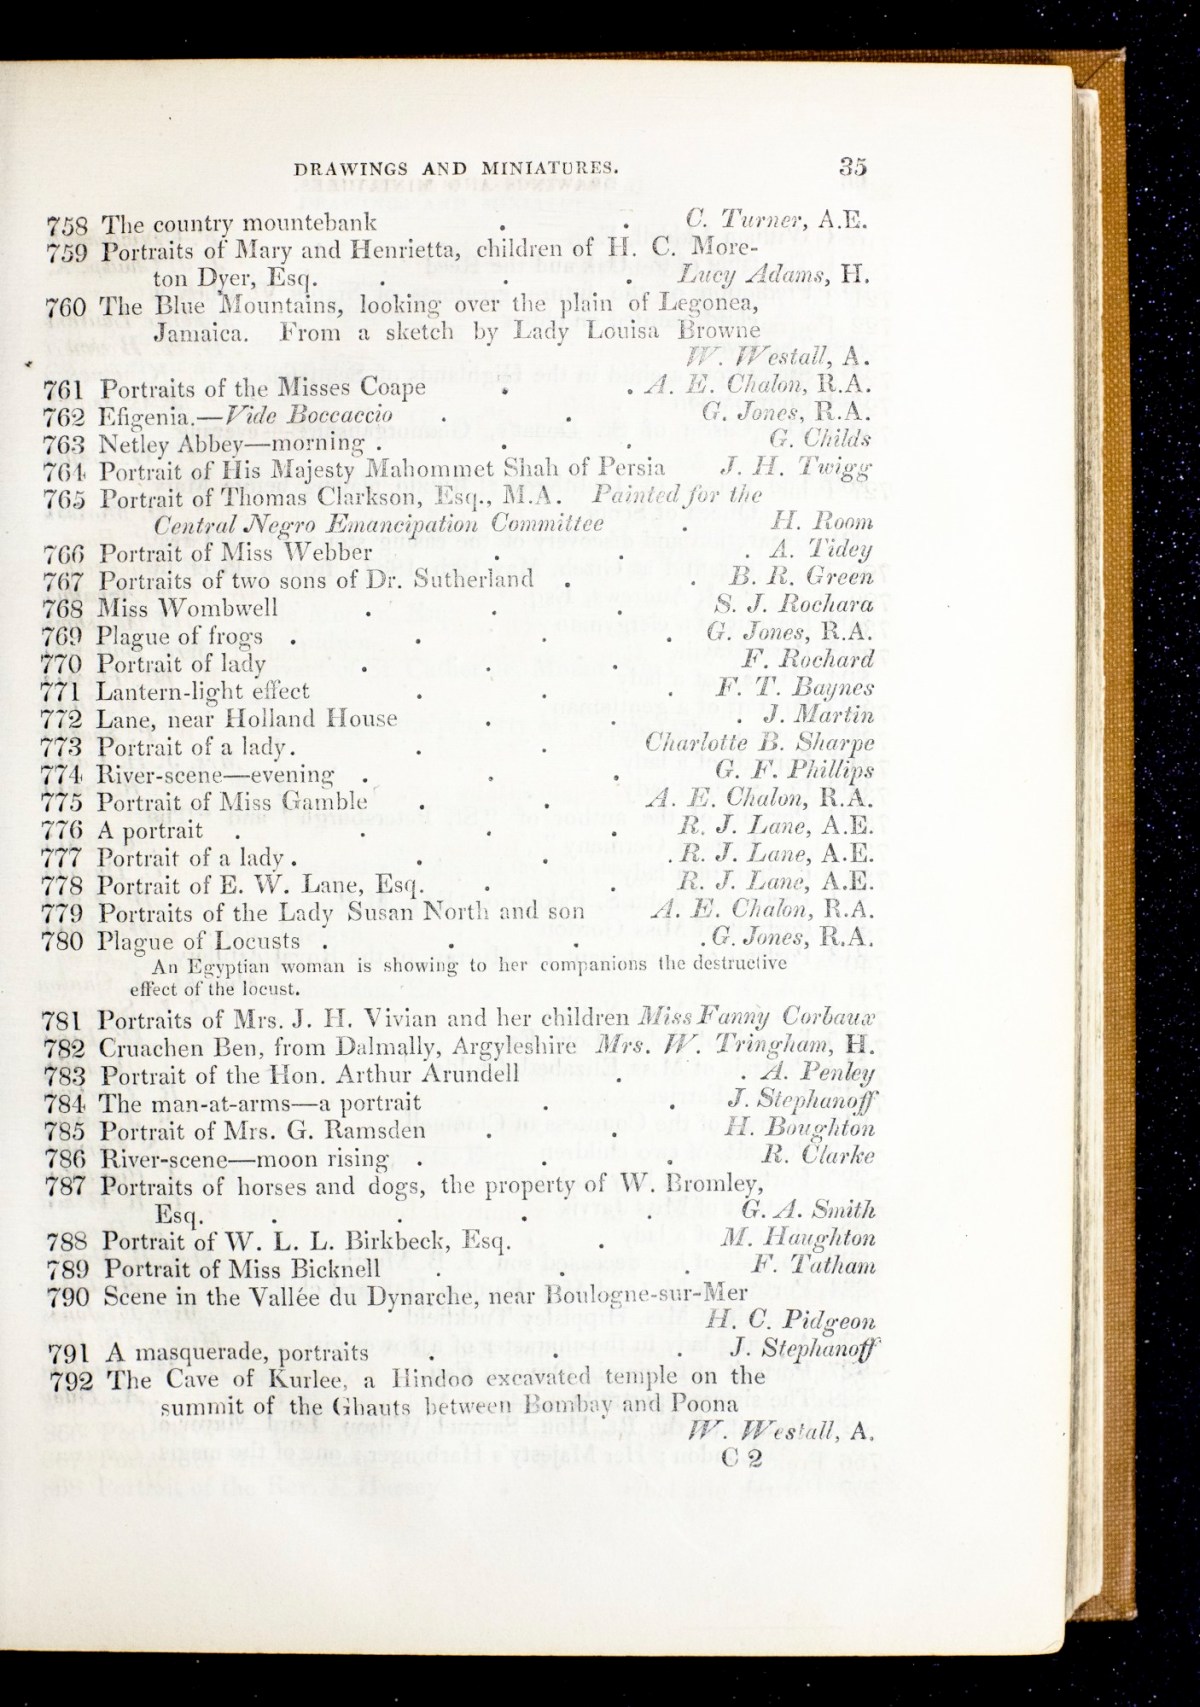 DRAWINGS AND MINIATURES. 35
758 The country mountebank . . C. Turner, A.E.
759 Portraits of Mary and Henrietta, children of H. C. More-
ton Dyer, Esq. . . . Lucy Adams, H.
760 The Blue Mountains, looking over the plain of Legonea,
Jamaica. From a sketch by Lady Louisa Browne
W. Westall, A.
761 Portraits of the Misses Coape . . A. E. Chalon, R.A.
762 Efigenia.—Vide Boccaccio . . G. Jones, R.A.
763 Netley Abbey—morning . . . G. Childs
764 Portrait of His Majesty Mahommet Shah of Persia J. H. Twigg
765 Portrait of Thomas Clarkson, Esq., M.A. Painted for the
Central Negro Emancipation Committee . H. Room
766 Portrait of Miss Webber . . . A. Tidey
767 Portraits of two sons of Dr. Sutherland . . B. R. Green
768 Miss Wombwell . . . S. J. Rochara
769 Plague of frogs . . . . G. Jones, R.A.
770 Portrait of lady . . . F. Rochard
771 Lantern-light effect . . . F. T. Baynes
772 Lane, near Holland House . . . J. Martin
773 Portrait of a lady . . . Charlotte B. Sharpe
774 River-scene—evening . . . G. F. Phillips
775 Portrait of Miss Gamble . . A. E. Chalon, R.A.
776 A portrait . . . . R. J. Lane, A.E.
777 Portrait of a lady . . . . R. J. Lane, A.E.
778 Portrait of E. W. Lane, Esq. . . R. J. Lane, A.E.
779 Portraits of the Lady Susan North and son A. E. Chalon, R.A.
780 Plague of Locusts . . . . G. Jones, R.A.
An Egyptian woman is showing to her companions the destructive
effect of the locust.
781 Portraits of Mrs. J. H. Vivian and her children Miss Fanny Corbaux
782 Cruachen Ben, from Dalmally, Argyleshire Mrs. W. Tringham, H.
783 Portrait of the Hon. Arthur Arundell . . A. Penley
784 The man-at-arms—a portrait . . J. Stephanoff
785 Portrait of Mrs. G. Ramsden . . H. Boughton
786 River-scene—moon rising . . . R. Clarke
787 Portraits of horses and dogs, the property of W. Bromley,
Esq. . . . . G. A. Smith
788 Portrait of W. L. L. Birkbeck, Esq. . M. Haughton
789 Portrait of Miss Bicknell . . . F. Tatham
790 Scene in the Vallée du Dynarche, near Boulogne-sur-Mer
H. C. Pidgeon
791 A masquerade, portraits . . . J. Stephanoff
792 The Cave of Kurlee, a Hindoo excavated temple on the
summit of the Ghauts between Bombay and Poona
W. Westall, A.
C 2